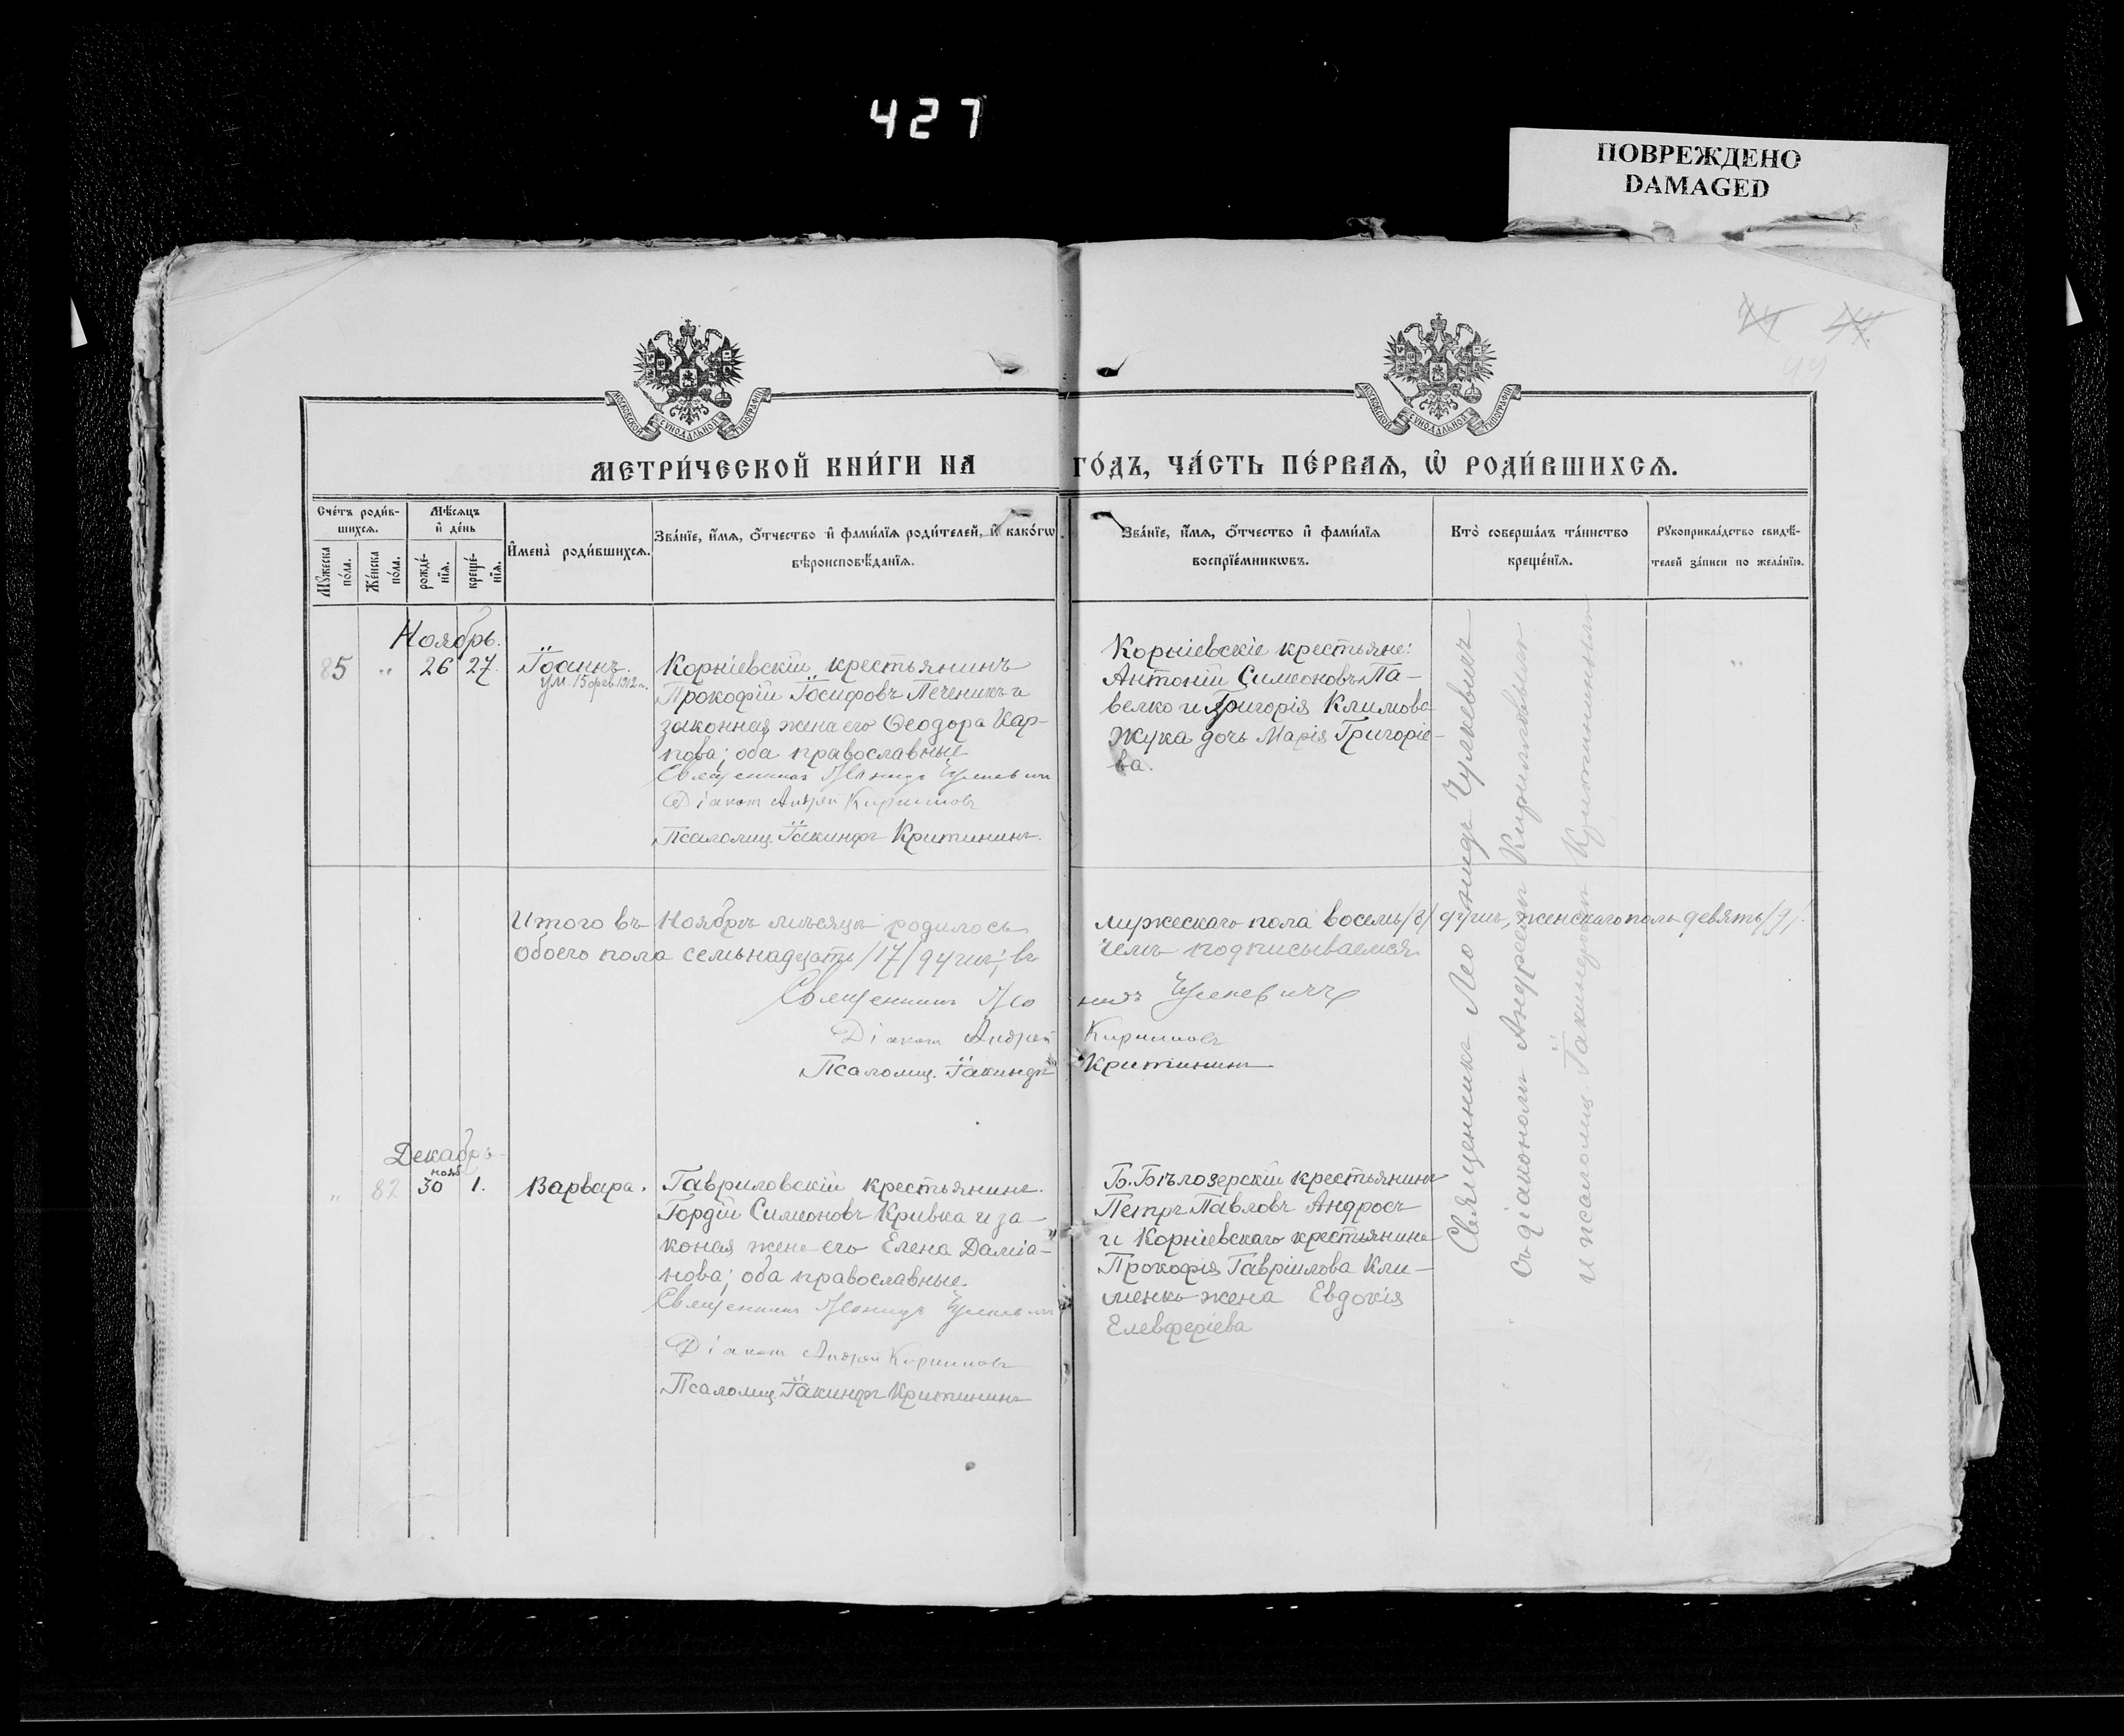 427
ПОВРЕЖДЕНО
DAMAGED
44
МОСКОВСКОЙ СѴНОДАЛЬНОЙ ТИПОГРАФІИ
МОСКОВСКОЙ СѴНОДАЛЬНОЙ ТИПОГРАФІИ
МЕТРИ́ЧЕСКОЙ КНИ́ГИ НА ГО́ДЪ, ЧА́СТЬ ПЕ́РВАѦ, Ѿ РОДИ́ВШИХСѦ.
Сче́тъ роди́в-
шихсѧ.
Мꙋ́жеска по́ла.
Же́нска по́ла.
Мѣ́сѧцъ
и҆ де́нь
рожде́-
нїѧ.
креще́-
нїѧ.
И҆мена̀ роди́вшихсѧ.
Зва́нїе, и҆́мѧ, ѻ҆́тчество и҆ фами́лїѧ роди́телей, и҆ како́гѡ
вѣроисповѣ́данїѧ.
Зва́нїе, и҆́мѧ, ѻ҆́тчество и҆ фами́лїѧ
воспрїе́мникѡвъ.
Кто̀ соверша́лъ та́инство
креще́нїѧ.
Рꙋкоприкла́дство свидѣ́-
телей за́писи по жела́нїю.
Ноябрь.
85 " 26 27. Іоаннъ.
ум. 15 фев. 1912 г.
Корніевскій крестьянинъ
Прокофій Іосифовъ Печеникъ и
законная жена его Ѳеодора Кар-
пова; оба православные
Священникъ Леонидъ Чулкевичъ
Діаконъ Андрей Кирилловъ
Псаломщ. Іакинфъ Критининъ.
Корніевскіе крестьяне:
Антоній Симеоновъ Па-
велко и Григорія Климова
Жука дочь Марія Григоріе-
ва.
"
Священникъ Леонидъ Чулкевичъ
съ діакономъ Андреемъ Кирилловымъ
и псаломщ. Іакинфомъ Критининымъ
Итого въ Ноябрѣ мѣсяцѣ родилось мужескаго пола восемь /8/ душъ, женскаго пола девять /9/.
обоего пола семьнадцать /17/ душъ; въ чемъ подписываемся
Священникъ Леонидъ Чулкевичъ
Діаконъ Андрей Кирилловъ
Псаломщ. Іакинфъ Критининъ
Декабрь
нояб.
" 82 30 1. Варвара.
Гавриловскій крестьянинъ
Гордій Симеоновъ Кривка и за-
коная жена его Елена Даміа-
нова; оба православные.
Священникъ Леонидъ Чулкевичъ
Діаконъ Андрей Кирилловъ
Псаломщ. Іакинфъ Критининъ
Б. Бѣлозерскій крестьянинъ
Петръ Павловъ Андросъ
и Корніевскаго крестьянина
Прокофія Гавріилова Кли-
менко жена Евдокія
Елевферіева